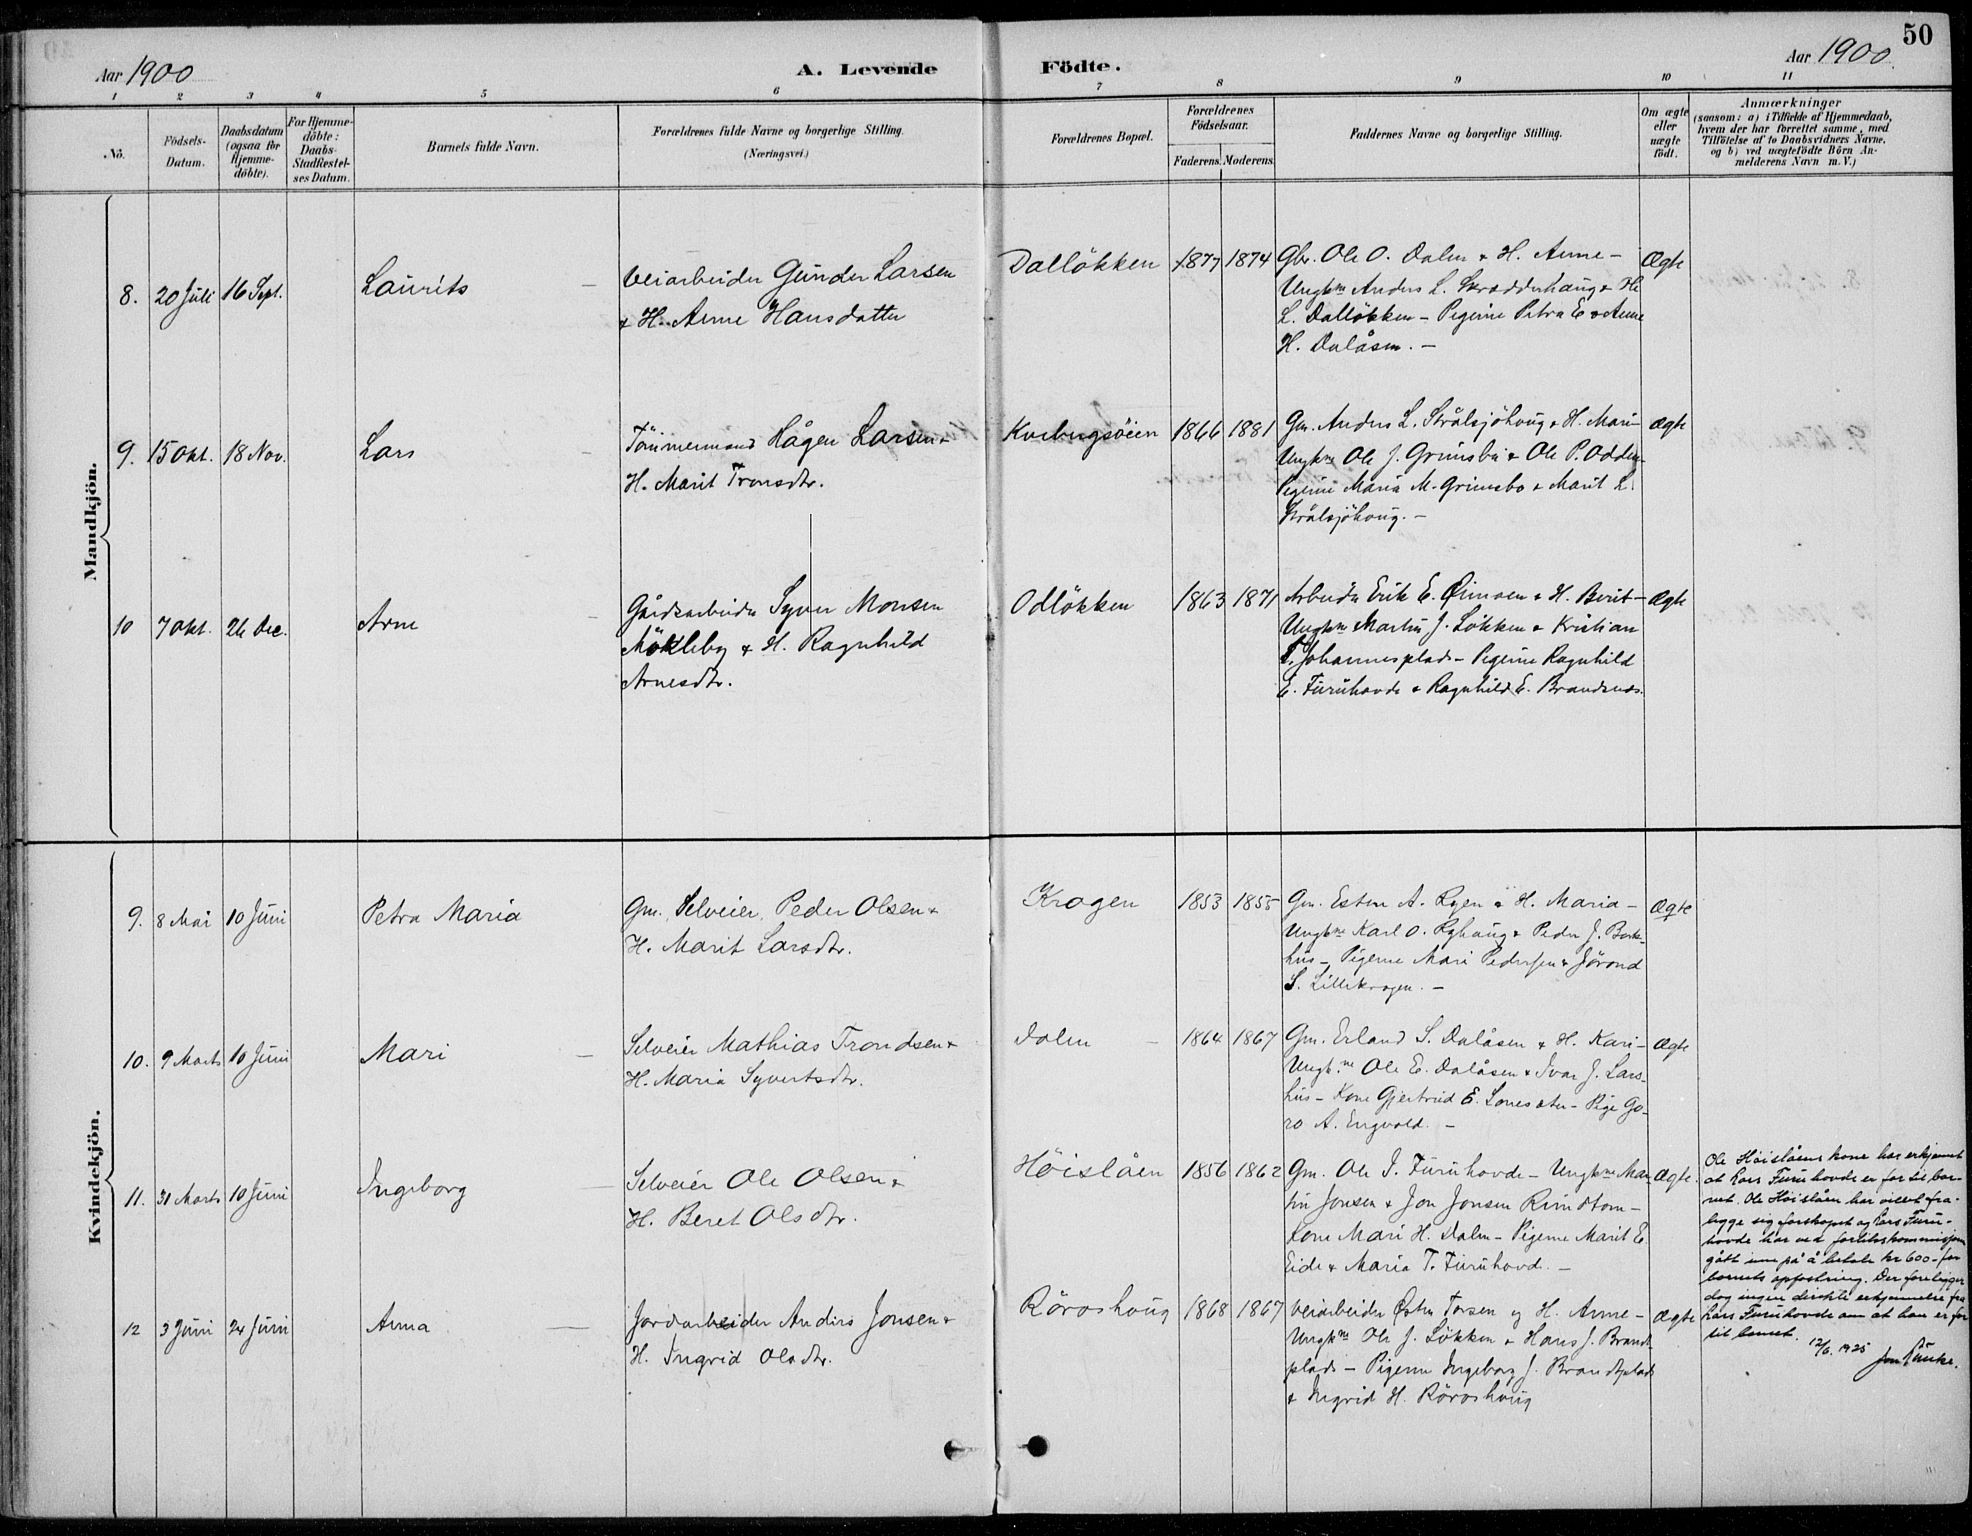 50
Aar 1900
A. Levende Födte.
Aar 1900.
1 2 3 4 5 6 7 8 9 10 11
No.
Födsels-
Datum.
Daabsdatum
(ogsaa for
Hjemme-
döbte).
For Hjemme-
döbte:
Daabs-
Stadfæstel-
ses Datum.
Barnets fulde Navn.
Forældrenes fulde Navne og borgerlige Stilling.
(Næringsvei.)
Forældrenes Bopæl.
Forældrenes
Födselsaar.
Faderens. Moderens.
Faddernes Navne og borgerlige Stilling.
Om ægte
eller
uægte
födt.
Anmærkninger
(saasom: a) i Tilfælde af Hjemmedaab,
hvem der har forrettet samme, med
Tilföielse af to Daabsvidners Navne,
og b) ved uægtefödte Börn An-
melderens Navn m. V.)
Mandkjön.
8. 20 Juli 16 Sept. Laurits –
Veiarbeider Gunder Larsen
& H. Anne Hansdatter
Dallökken 1877 1874
Gbr. Ole O. Dalen & H. Anne –
Ungkne Anders L. Skrædderhaug & He
L. Dallökken – Pigerne Petra E & Anne
H. Dalåsen. –
Ægte
9. 15 Okt. 18 Nov. Lars –
Tömmermand Hågen Larsen &
H. Marit Tronsdtr.
Kvebergsöien 1866 1881
Gm. Anders L. Strålsjöhoug & H. Mari –
Ungkne Ole J. Grimsbu & Ole P. Odden –
Pigerne Maria M. Grimsbo & Marit L.
Strålsjöhoug. –
Ægte
10 7 Okt. 26 Dec. Arne –
Gårdsarbeider Syver Monsen
Mökleby & H. Ragnhild
Arnesdtr.
Odlökken 1863 1871
Arbeider Erik E. Örmoen & H. Berit –
Ungkne Martin J. Lökken & Kristian
T. Johannesplads – Pigerne Ragnhild
E. Furuhovde & Ragnhild E. Brandsnæs.
Ægte
Kvindekjön.
9. 8 Mai 10 Juni Petra Maria
Gm. Selveier Peder Olsen &
H. Marit Larsdtr.
Krogen 1853 1855
Gm. Esten A. Ryen & H. Maria –
Ungkne Karl O. Ryhaug & Peder J. Bak-
hus – Pigerne Mari Pedersen & Jörond
S. Lillekrogen. –
Ægte
10. 9 Marts 10 Juni Mari –
Selveier Mathias Trondsen &
H. Maria Syvertsdtr.
Dalen – 1864 1867
Gm. Erland S. Dalåsen & H. Kari –
Ungk.ne Ole E. Dalåsen & Ivar J. Lars-
hus – Kone Gjertrud E. Sonesæter – Pige Go-
ro A. Engvold. –
Ægte
11. 31 Marts 10 Juni Ingeborg –
Selveier Ole Olsen &
H. Beret Olsdtr.
Höislåen 1856 1862
Gm. Ole I. Furuhovde – Ungkne Mar-
tin Jonsen & Jon Jonsen Rundtom –
Kone Mari H. Dalen – Pigerne Marit E
Eide & Maria T. Furuhovd. –
Ægte.
Ole Höislåens kone har erkjennt
at Lars Furuhovde er far til bar-
net. Ole Höislåen har villet fra-
ligge sig farskapet og Lars Furu-
hovde har ved forlikskommisjonen
gått inn på å betale kr 600 – for
barnets opfostring. Der foreligger
dog ingen direkte erkjennelse fra
Lars Furuhovde om at han er far
til barnet.
12/6. 1925
12 3 Juni 24 Juni Anna –
Jordarbeider Anders Jonsen &
H. Ingrid Olsdtr.
Röroshoug 1868 1867
Veiarbeider Östen Torsen og H. Anne –
Ungkne Ole J. Lökken & Hans J. Brandt-
plads – Pigerne Ingeborg J. Brandtplads
& Ingrid H. Röroshoug
Ægte